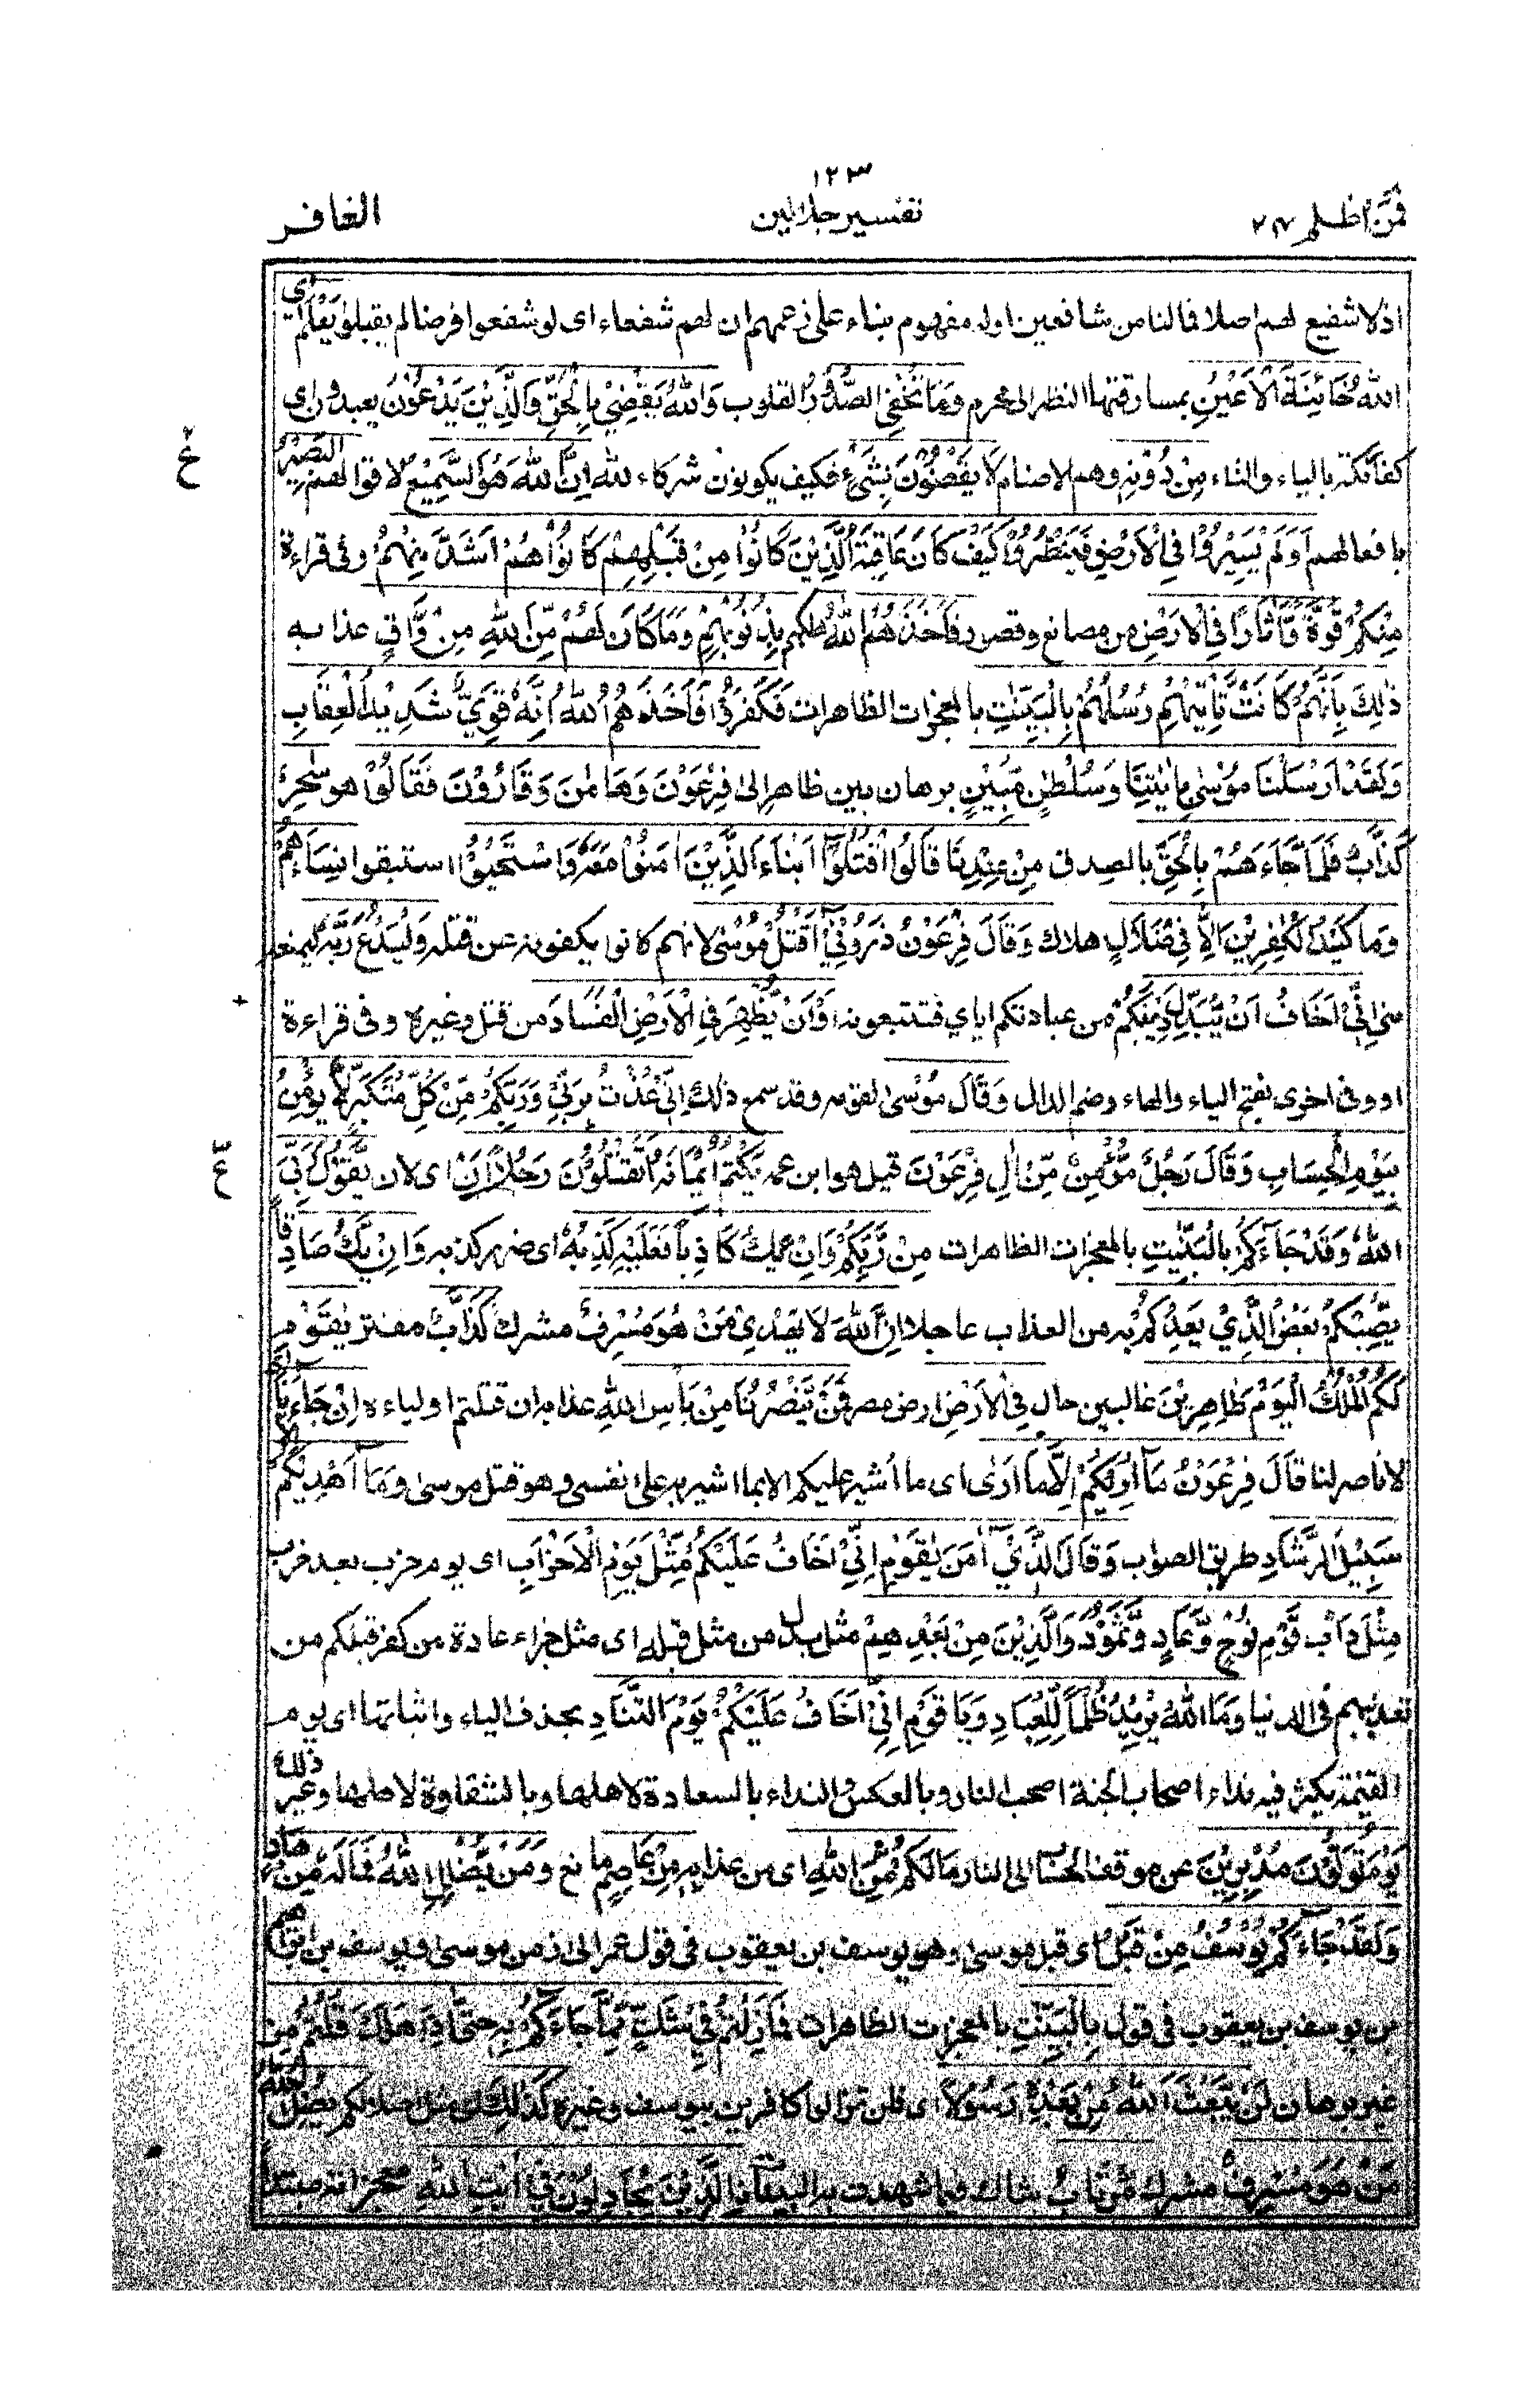 ١٢٣
فمن اظلم ٢٤
تفسير جلالين
الغافر
اذ لا شفيع لهم اصلا فما لنا من شافعين اوله مفهوم بناء على زعمهم ان لهم شفعاء اى لو شفعوا فرضا لم يقبلوا يَعْلَمُ اى
اللهُ خَائِنَةَ الْاَعْيُنِ بمسارقتها النظر الى محرم وَمَا تُخْفِى الصُّدُوْرُ القلوب وَاللهُ يَقْضِيْ بِالْحَقِّ وَالَّذِيْنَ يَدْعُوْنَ يعبدون اى
كفار مكة بالياء والتاء مِنْ دُوْنِهٖ وهم الاصنام لَا يَقْضُوْنَ بِشَيْءٍ فكيف يكونون شركاء لله اِنَّ اللهَ هُوَ السَّمِيْعُ لاقوالهم الْبَصِيْرُ
بافعالهم اَوَلَمْ يَسِيْرُوْا فِي الْاَرْضِ فَيَنْظُرُوْا كَيْفَ كَانَ عَاقِبَةُ الَّذِيْنَ كَانُوْا مِنْ قَبْلِهِمْ كَانُوْا هُمْ اَشَدَّ مِنْهُمْ وفى قراءة
مِنْكُمْ قُوَّةً وَّاٰثَارًا فِي الْاَرْضِ من مصانع وقصور فَاَخَذَهُمُ اللهُ اهلكهم بِذُنُوْبِهِمْ وَمَا كَانَ لَهُمْ مِّنَ اللهِ مِنْ وَّاقٍ عذابه
ذٰلِكَ بِاَنَّهُمْ كَانَتْ تَّاْتِيْهِمْ رُسُلُهُمْ بِالْبَيِّنٰتِ بالمعجزات الظاهرات فَكَفَرُوْا فَاَخَذَهُمُ اللهُ اِنَّهٗ قَوِيٌّ شَدِيْدُ الْعِقَابِ
وَلَقَدْ اَرْسَلْنَا مُوْسٰى بِاٰيٰتِنَا وَسُلْطٰنٍ مُّبِيْنٍ برهان بين ظاهر اِلٰى فِرْعَوْنَ وَهَامٰنَ وَقَارُوْنَ فَقَالُوْا هو سٰحِرٌ
كَذَّابٌ فَلَمَّا جَاءَهُمْ بِالْحَقِّ بالصدق مِنْ عِنْدِنَا قَالُوا اقْتُلُوْٓا اَبْنَاءَ الَّذِيْنَ اٰمَنُوْا مَعَهٗ وَاسْتَحْيُوْا استبقوا نِسَاءَهُمْ
وَمَا كَيْدُ الْكٰفِرِيْنَ اِلَّا فِيْ ضَلَالٍ هلاك وَقَالَ فِرْعَوْنُ ذَرُوْنِيْ اَقْتُلْ مُوْسٰى لانهم كانوا يكفونه عن قتله وَلْيَدْعُ رَبَّهٗ ليمنعه
منى اِنِّيْ اَخَافُ اَنْ يُّبَدِّلَ دِيْنَكُمْ من عبادتكم اياي فتتبعونه اَوْ اَنْ يُّظْهِرَ فِي الْاَرْضِ الْفَسَادَ من قتل وغيره وفى قراءة
او وفى اخرى بفتح الياء والهاء وضم الدال وَقَالَ مُوْسٰى لقومه وقد سمع ذلك اِنِّيْ عُذْتُ بِرَبِّيْ وَرَبِّكُمْ مِّنْ كُلِّ مُتَكَبِّرٍ لَّا يُؤْمِنُ
بِيَوْمِ الْحِسَابِ وَقَالَ رَجُلٌ مُّؤْمِنٌ مِّنْ اٰلِ فِرْعَوْنَ قيل هو ابن عمه يَكْتُمُ اِيْمَانَهٗ اَتَقْتُلُوْنَ رَجُلًا اَنْ اى لان يَّقُوْلَ رَبِّيَ
اللهُ وَقَدْ جَاءَكُمْ بِالْبَيِّنٰتِ بالمعجزات الظاهرات مِنْ رَّبِّكُمْ وَاِنْ يَّكُ كَاذِبًا فَعَلَيْهِ كَذِبُهٗ اى ضرر كذبه وَاِنْ يَّكُ صَادِقًا
يُّصِبْكُمْ بَعْضُ الَّذِيْ يَعِدُكُمْ به من العذاب عاجلا اِنَّ اللهَ لَا يَهْدِيْ مَنْ هُوَ مُسْرِفٌ مشرك كَذَّابٌ مفتر يٰقَوْمِ
لَكُمُ الْمُلْكُ الْيَوْمَ ظٰهِرِيْنَ غالبين حال فِي الْاَرْضِ ارض مصر فَمَنْ يَّنْصُرُنَا مِنْ بَاْسِ اللهِ عذابه ان قتلتم اولياءه اِنْ جَاءَنَا اى
لا ناصر لنا قَالَ فِرْعَوْنُ مَا اُرِيْكُمْ اِلَّا مَا اَرٰى اى ما اشير عليكم الا بما اشير به على نفسى وهو قتل موسى وَمَا اَهْدِيْكُمْ اِلَّا
سَبِيْلَ الرَّشَادِ طريق الصواب وَقَالَ الَّذِيْ اٰمَنَ يٰقَوْمِ اِنِّيْ اَخَافُ عَلَيْكُمْ مِّثْلَ يَوْمِ الْاَحْزَابِ اى يوم حزب بعد حزب
مِثْلَ دَاْبِ قَوْمِ نُوْحٍ وَّعَادٍ وَّثَمُوْدَ وَالَّذِيْنَ مِنْ بَعْدِهِمْ مثل بدل من مثل قبله اى مثل جزاء عادة من كفر قبلكم من
تعذيبهم فى الدنيا وَمَا اللهُ يُرِيْدُ ظُلْمًا لِّلْعِبَادِ وَيَا قَوْمِ اِنِّيْ اَخَافُ عَلَيْكُمْ يَوْمَ التَّنَادِ بحذف الياء واثباتها اى يوم
القيٰمة يكثر فيه نداء اصحاب الجنة اصحٰب النار وبالعكس والنداء بالسعادة لاهلها وبالشقاوة لاهلها وغير ذلك
يَوْمَ تُوَلُّوْنَ مُدْبِرِيْنَ عن موقف الحساب الى النار مَا لَكُمْ مِّنَ اللهِ اى من عذابه مِنْ عَاصِمٍ مانع وَمَنْ يُّضْلِلِ اللهُ فَمَا لَهٗ مِنْ هَادٍ
وَلَقَدْ جَاءَكُمْ يُوْسُفُ مِنْ قَبْلُ اى قبل موسى وهو يوسف بن يعقوب فى قول عمر الى زمن موسى او يوسف بن ابراهيم
بن يوسف بن يعقوب فى قول بِالْبَيِّنٰتِ بالمعجزات الظاهرات فَمَا زِلْتُمْ فِيْ شَكٍّ مِّمَّا جَاءَكُمْ بِهٖ حَتّٰى اِذَا هَلَكَ قُلْتُمْ من
غير برهان لَنْ يَّبْعَثَ اللهُ مِنْ بَعْدِهٖ رَسُوْلًا اى فلن تزالوا كافرين بيوسف وغيره كَذٰلِكَ اى مثل ضلالكم يُضِلُّ اللهُ
مَنْ هُوَ مُسْرِفٌ مشرك مُّرْتَابٌ شاك فيما شهدت به البينات الَّذِيْنَ يُجَادِلُوْنَ فِيْ اٰيٰتِ اللهِ معجزاته مبتدأ